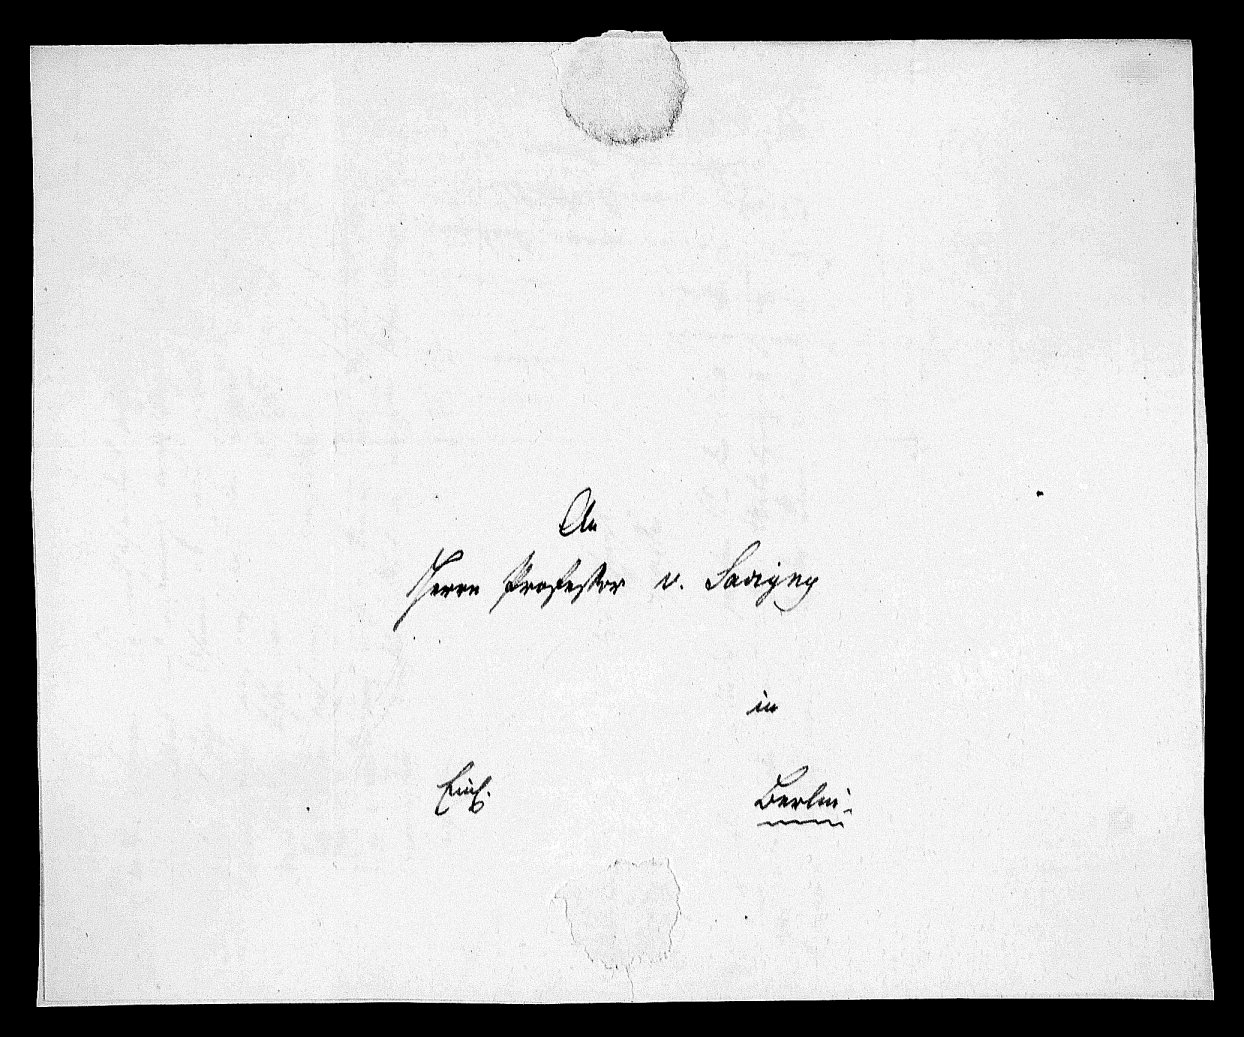 An
Herrn Professor v. Savigny
in
Berlin.